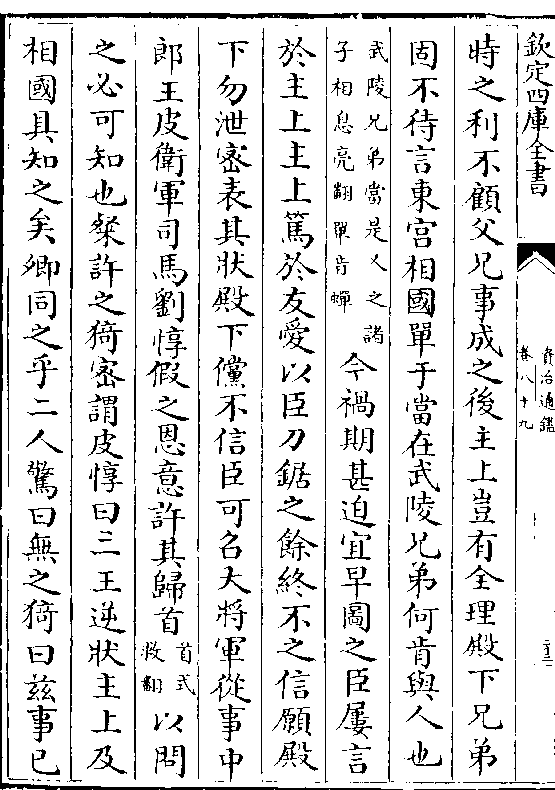 欽定四庫全書
資治通鑑
卷八十九
時之利不顧父兄事成之後主上豈有全理殿下兄弟
固不待言東宮相國單于當在武陵兄弟何肯與人也
武陵兄弟當是乂之諸
子相息亮翻單音蟬
今禍期甚迫宜早圖之臣屢言
於主上主上篤於友愛以臣刀鋸之餘終不之信願殿
下勿泄密表其狀殿下儻不信臣可召大將軍從事中
郎王皮衛軍司馬劉惇假之恩意許其歸首
首式
救翻
以問
之必可知也粲許之猗密謂皮惇曰二王逆狀主上及
相國具知之矣卿同之乎二人驚曰無之猗曰兹事已